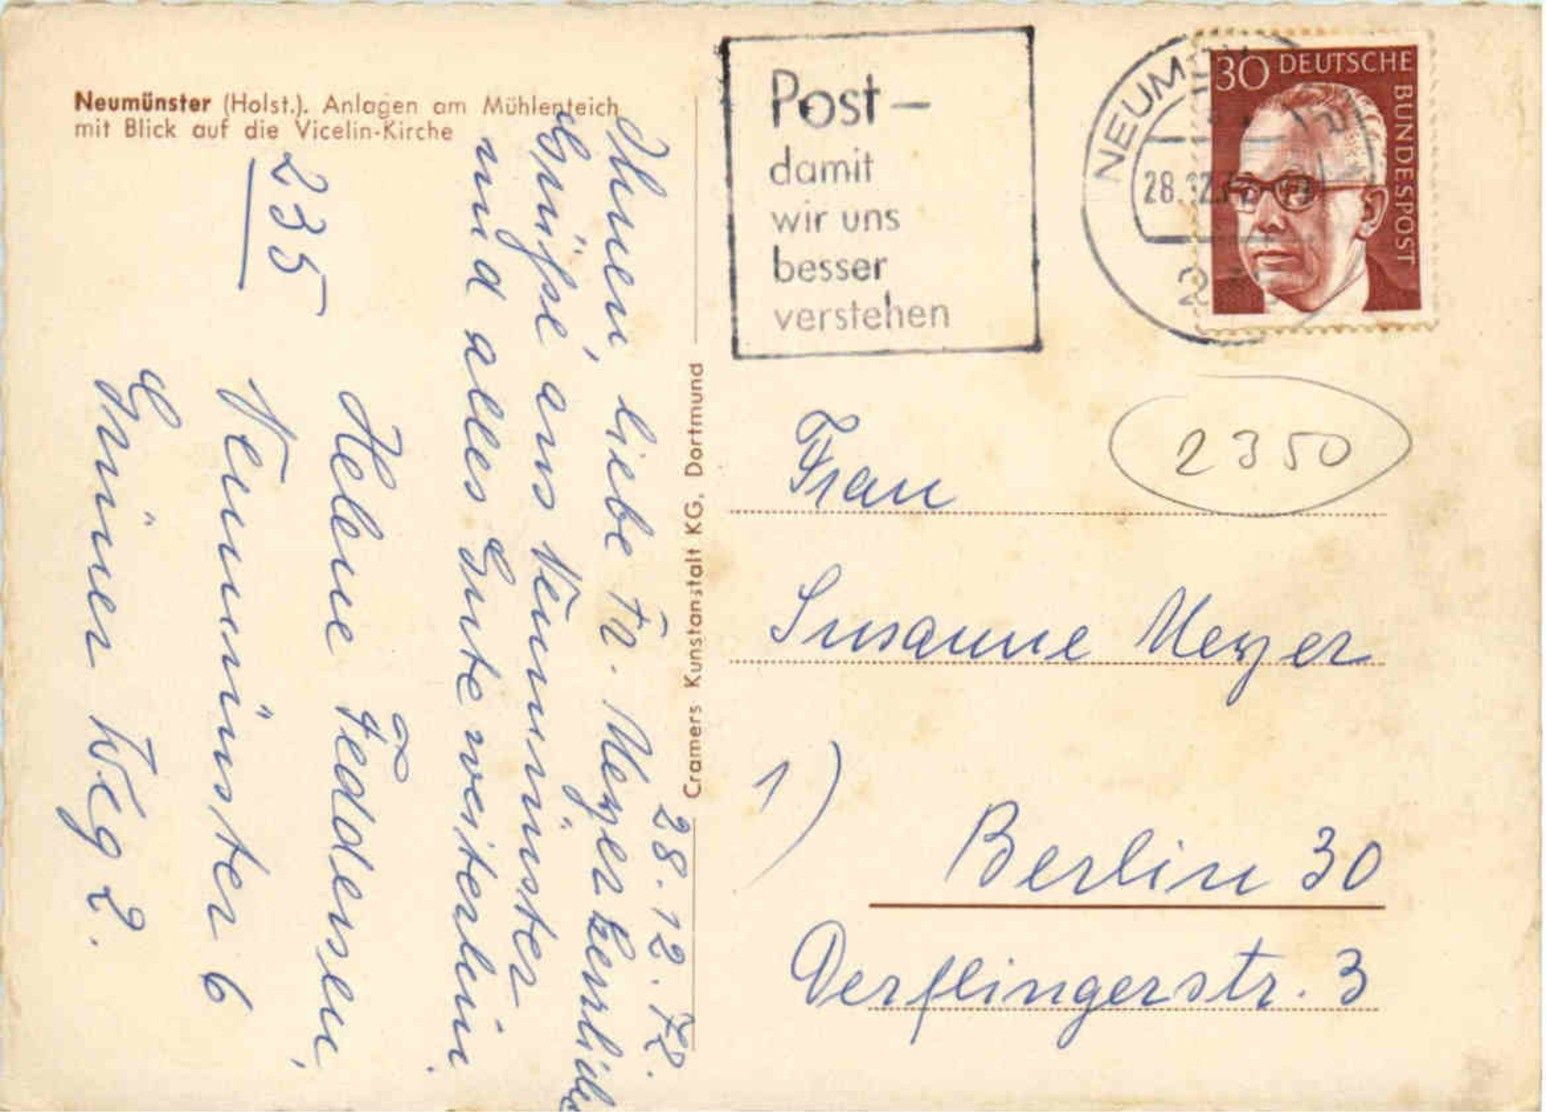 Neumünster (Holst.). Anlagen am Mühlenteich
mit Blick auf die Vicelin-Kirche
28.12.72.
Ihnen, liebe Fr. Meyer herzliche
Grüße aus Neumünster
und alles Gute weiterhin
Helene Feddersen,
235 Neumünster 6
Grüner Weg 2.
Cramers Kunstanstalt KG, Dortmund
Post –
damit
wir uns
besser
verstehen
NEUM
28.12.72
30 DEUTSCHE
BUNDESPOST
2350
Frau
Susanne Meyer
1)
Berlin 30
Derflingerstr. 3